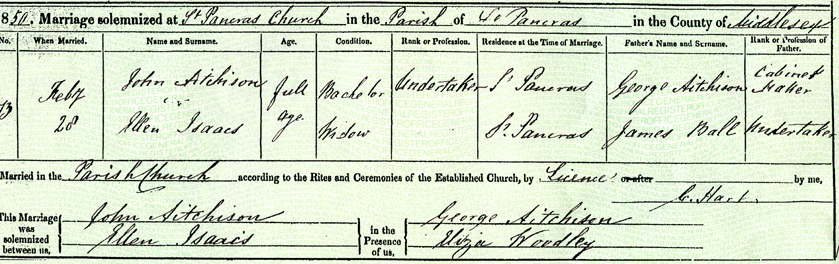 850. Marriage solemnized at St Pancras Church in the Parish of St Pancras in the County of Middlesex
No. When Married. Name and Surname. Age. Condition. Rank or Profession. Residence at the Time of Marriage. Father's Name and Surname. Rank or Profession of Father.
73 Feby 28 John Aitchison full age. Bachelor Undertaker St Pancras George Aitchison Cabinet Maker
Ellen Isaacs Widow St Pancras James Ball Undertaker
Married in the Parish Church according to the Rites and Ceremonies of the Established Church, by Licence or after by me,
C. Hart.
This Marriage was solemnized between us, John Aitchison in the Presence of us, George Aitchison
Ellen Isaacs Eliza Woodley